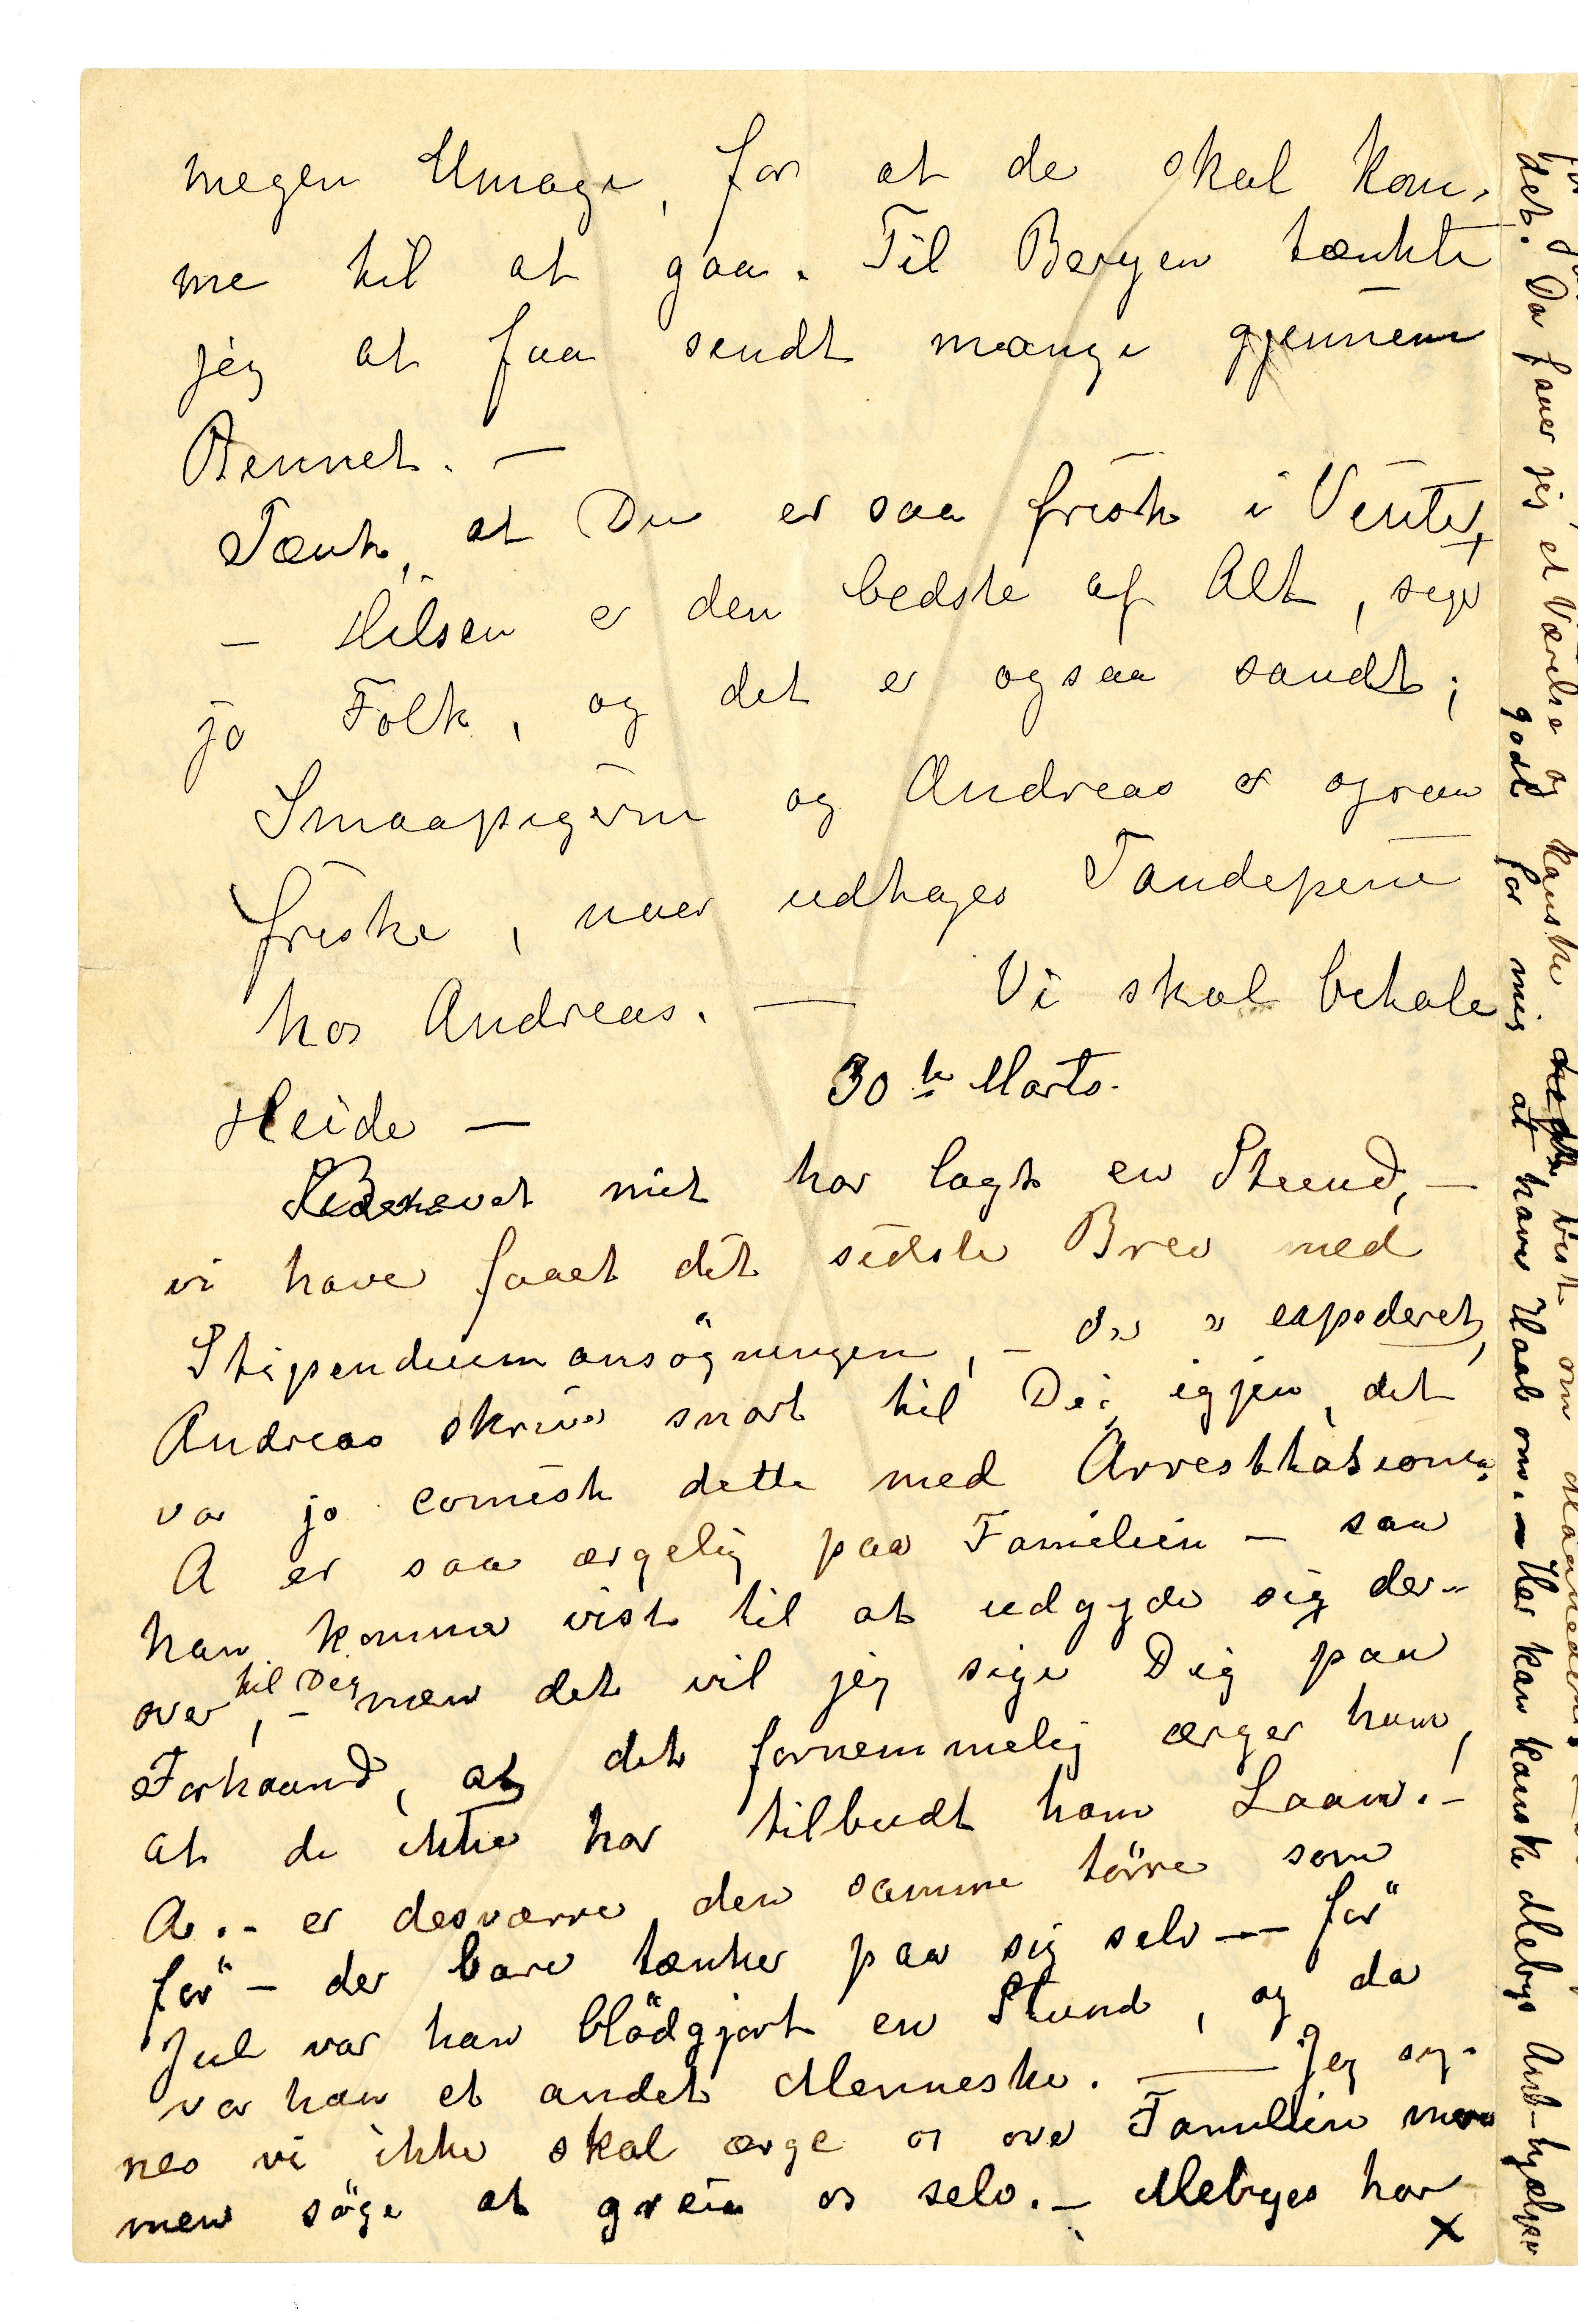 megen Umage, for at de skal kom-
me til at gaa. Til Bergen tænkte
jeg at faa sendt mange gjennem
Rennet. —
Tænk, at Du er saa frisk i Vinter,
— Hilsen er den bedste af Alt, siger
jo Folk, og det er ogsaa sandt;
Smaapigerne og Andreas er ogsaa
friske, naar udtages Tandepine
hos Andreas. — Vi skal betale
Heide —
30te Marts.
Brevet mit har lagt en Stund, —
vi have faaet dit sidste Brev med
Stipendiumansögningen, — " expederet,
Andreas skriver snart til Dig igjen, det
var jo comisk dette med Arrestationen,
A er saa ærgelig paa Familien — saa
han kommer vist til at udgyde sig der-
over til Dig, — men det vil jeg sige Dig paa
Forhaand, at det fornemmelig ærger ham,
at de ikke har tilbudt ham Laan! —
A. – er desværre den samme törre som
för — der bare tænker paa sig selv — för
Jul var han blödgjort en Stund, og da
var han et andet Menneske. — Jeg sy-
nes vi ikke skal ærge os over Familien mere
men söge at greie os selv. — Mebyes har
X
det. Da faaer jeg et Værelse og kanske vist om
godt for mig at have Haab om. — Her kan kanske Mebys hjælpe